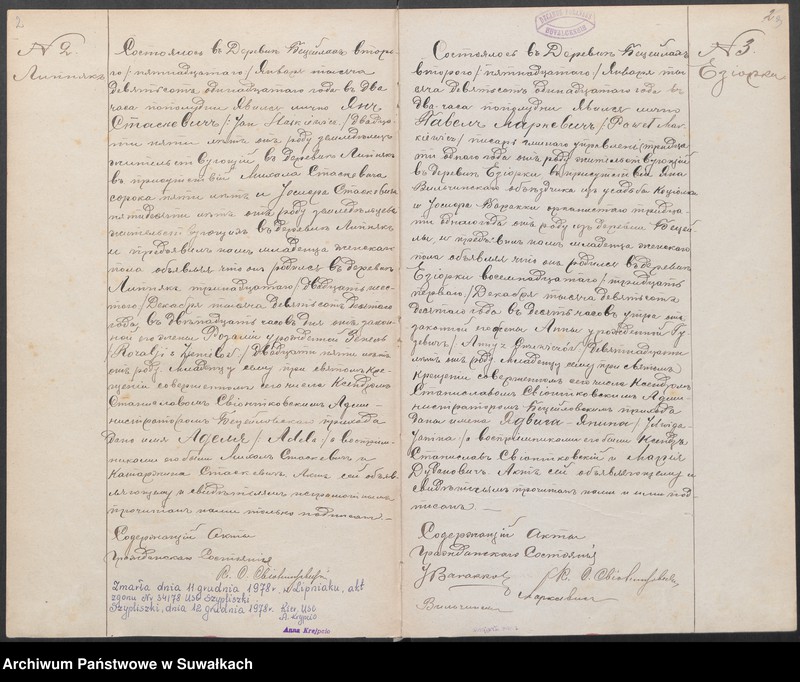 2
N 2.
Липнякъ
Состоялось въ Деревнѣ Бецейлахъ второ-
го /пятнадцатаго/ Января тысяча
девятьсотъ одинадцатаго года въ два
часа пополудни. Явился лично Янъ
Стаскевичъ /: Jan Staśkiewicz / двадца-
ти пяти лѣтъ отъ роду земледѣлецъ
жительствующій въ деревнѣ Липнякъ
въ присутствіи Михала Стаскевича
сорока пяти лѣтъ и Іосифа Стаскевича
пятидесяти лѣтъ отъ роду земледѣльцевъ
жительствующихъ въ деревнѣ Липнякъ
и предъявилъ намъ младенца женскаго
пола объявляя что онъ родился въ деревнѣ
Липнякъ тринадцатаго /двадцать шес-
таго/ Декабря тысяча девятьсотъ десятаго
года, въ двѣнадцать часовъ дня отъ закон-
ной его жены Розаліи урожденной
/Rozalji z / двадцати пяти лѣтъ
отъ роду. Младенцу сему при святомъ Кре-
щеніи совершенномъ сего числа Ксендзомъ
Станиславомъ Свіонтковскимъ Адми-
нистраторомъ Бецейловскаго прихода
дано имя Аделя / Adela / а воспріем-
никами его были Михалъ Стаскевичъ и
Катаржина Стаскевичъ. Актъ сей объяв-
ляющему и свидѣтелямъ неграмотнымъ
прочитанъ нами только подписанъ. —
Содержащій Акты
Гражданскаго Состоянія
Zmarła dnia 11 grudnia 1978 r. w Lipniaku, akt
zgonu Nr 54/78 USC Szypliszki
Szypliszki, dnia 12 grudnia 1978 r. Kier. USC
Anna Krejpcio
N 3.
Езіорки
Состоялось въ Деревнѣ Бецейлахъ
второго /пятнадцатаго/ Января тыс-
яча девятьсотъ одинадцатаго года въ
два часа пополудни. Явился лично
Павелъ Маркевичъ / Paweł Mar-
kiewicz / писарь гминнаго управленія тридца-
ти одного года отъ роду жительствующій
въ деревнѣ Езіорки въ присутствіи Яна
объѣздчика изъ усадьбы
и Іосифа органиста тридца-
ти одного года отъ роду изъ деревни Бецей-
лы и предъявилъ намъ младенца женскаго
пола объявляя что онъ родился въ деревнѣ
Езіорки восемнадцатаго /тридцать
перваго/ Декабря тысяча девятьсотъ
десятаго года въ десять часовъ утра отъ
законной его жены Анны урожденной
/ Anny z / девятнадцати
лѣтъ отъ роду. Младенцу сему при святомъ
крещеніи совершенномъ сего числа Ксендзомъ
Станиславомъ Свіонтковскимъ Адми-
нистраторомъ Бецейловскаго прихода
даны имена Ядвига-Янина / Jadwiga-
Janina / а воспріемниками его были Ксендзъ
Станиславъ Свіонтковскій и Марія
Актъ сей объявляющему и
свидѣтелямъ прочитанъ нами и ими под-
писанъ. —
Содержащій Акты
Гражданскаго Состоянія
Маркевичъ
Archiwum Państwowe w Suwałkach